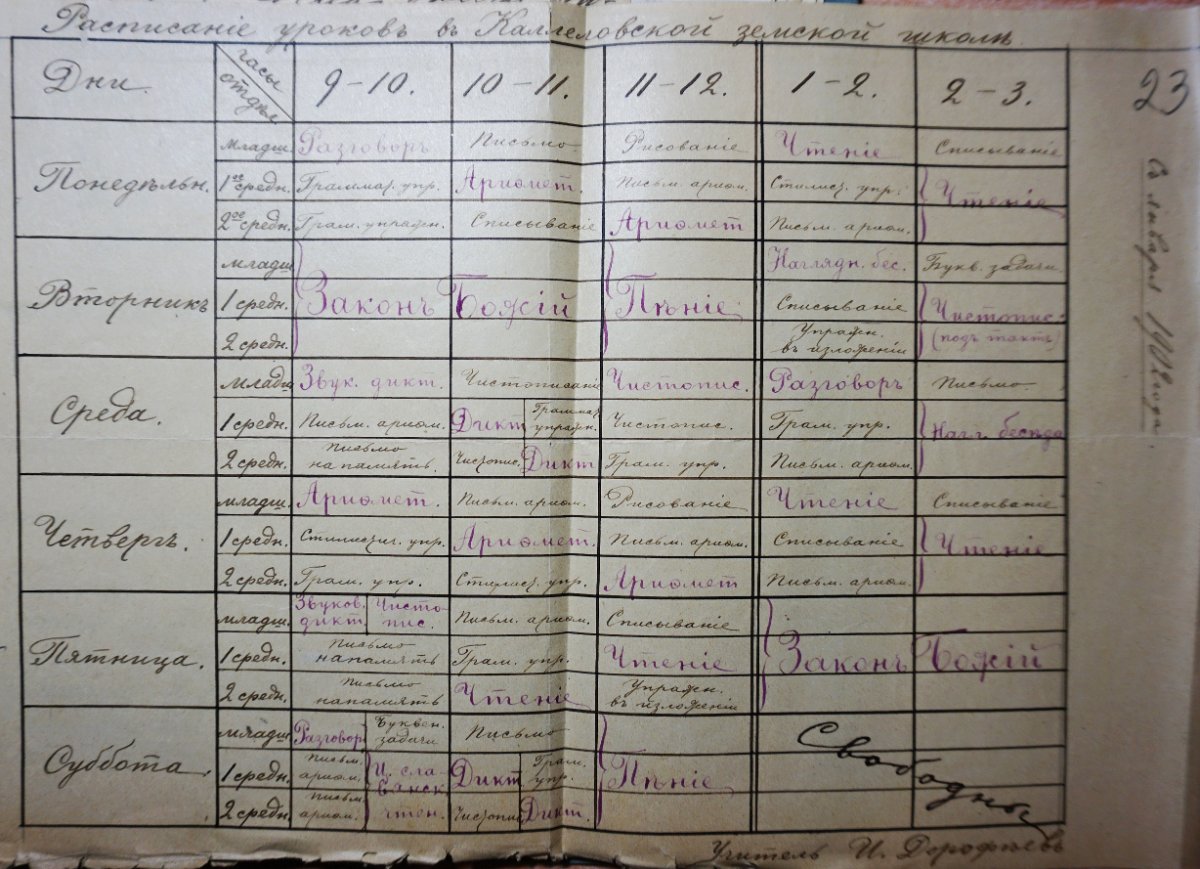 Расписаніе уроковъ въ Каллеловской земской школѣ.
23
Съ января 1902 года.
Дни. часы отдѣл. 9-10. 10-11. 11-12. 1-2. 2-3.
Понедѣльн.
младш. Разговоръ Письмо Рисованіе Чтеніе Списываніе
1ое средн. Граммат. упр. Ариѳмет. Письм. ариѳм. Стилист. упр. Чтеніе
2ое средн. Грам. упражн. Списываніе Ариѳмет Письм. ариѳм.
Вторникъ
младш Наглядн. бес. Букв. задачи.
1 средн. Законъ Божій Пѣніе Списываніе Чистопис.
2 средн. Упражн. въ изложеніи (подъ тактъ)
Среда.
младш Звук. дикт. Чистописані Чистопис. Разговоръ Письмо
1 средн. Письм. ариѳм. Дикт Граммат упражн. Чистопис. Грам. упр. Нагл. бесѣда
2 средн. письмо на память. Чистопис. Дикт Грам. упр. Письм. ариѳм.
Четвергъ.
младш. Ариѳмет. Письм. ариѳм. Рисованіе Чтеніе Списываніе
1 средн. Стилистич. упр. Ариѳмет. Письм. ариѳм. Списываніе Чтеніе
2 средн. Грам. упр. Стилист. упр. Ариѳмет Письм. ариѳм.
Пятница.
младш. Звуков. дикт. Чисто-пис. Письм. ариѳм. Списываніе
1 средн. письмо на память Грам. упр. Чтеніе Законъ Божій
2 средн. письмо на память Чтеніе Упражн. въ изложеніи
Суббота.
младш. Разговор Буквен. задачи Письмо
1 средн. письм. ариѳм. Ц. сла-вянск чтен. Дикт Грам. упр. Пѣніе Свободны
2 средн. письм. ариѳм. Чистопис Дикт.
Учитель И. Дорофѣевъ